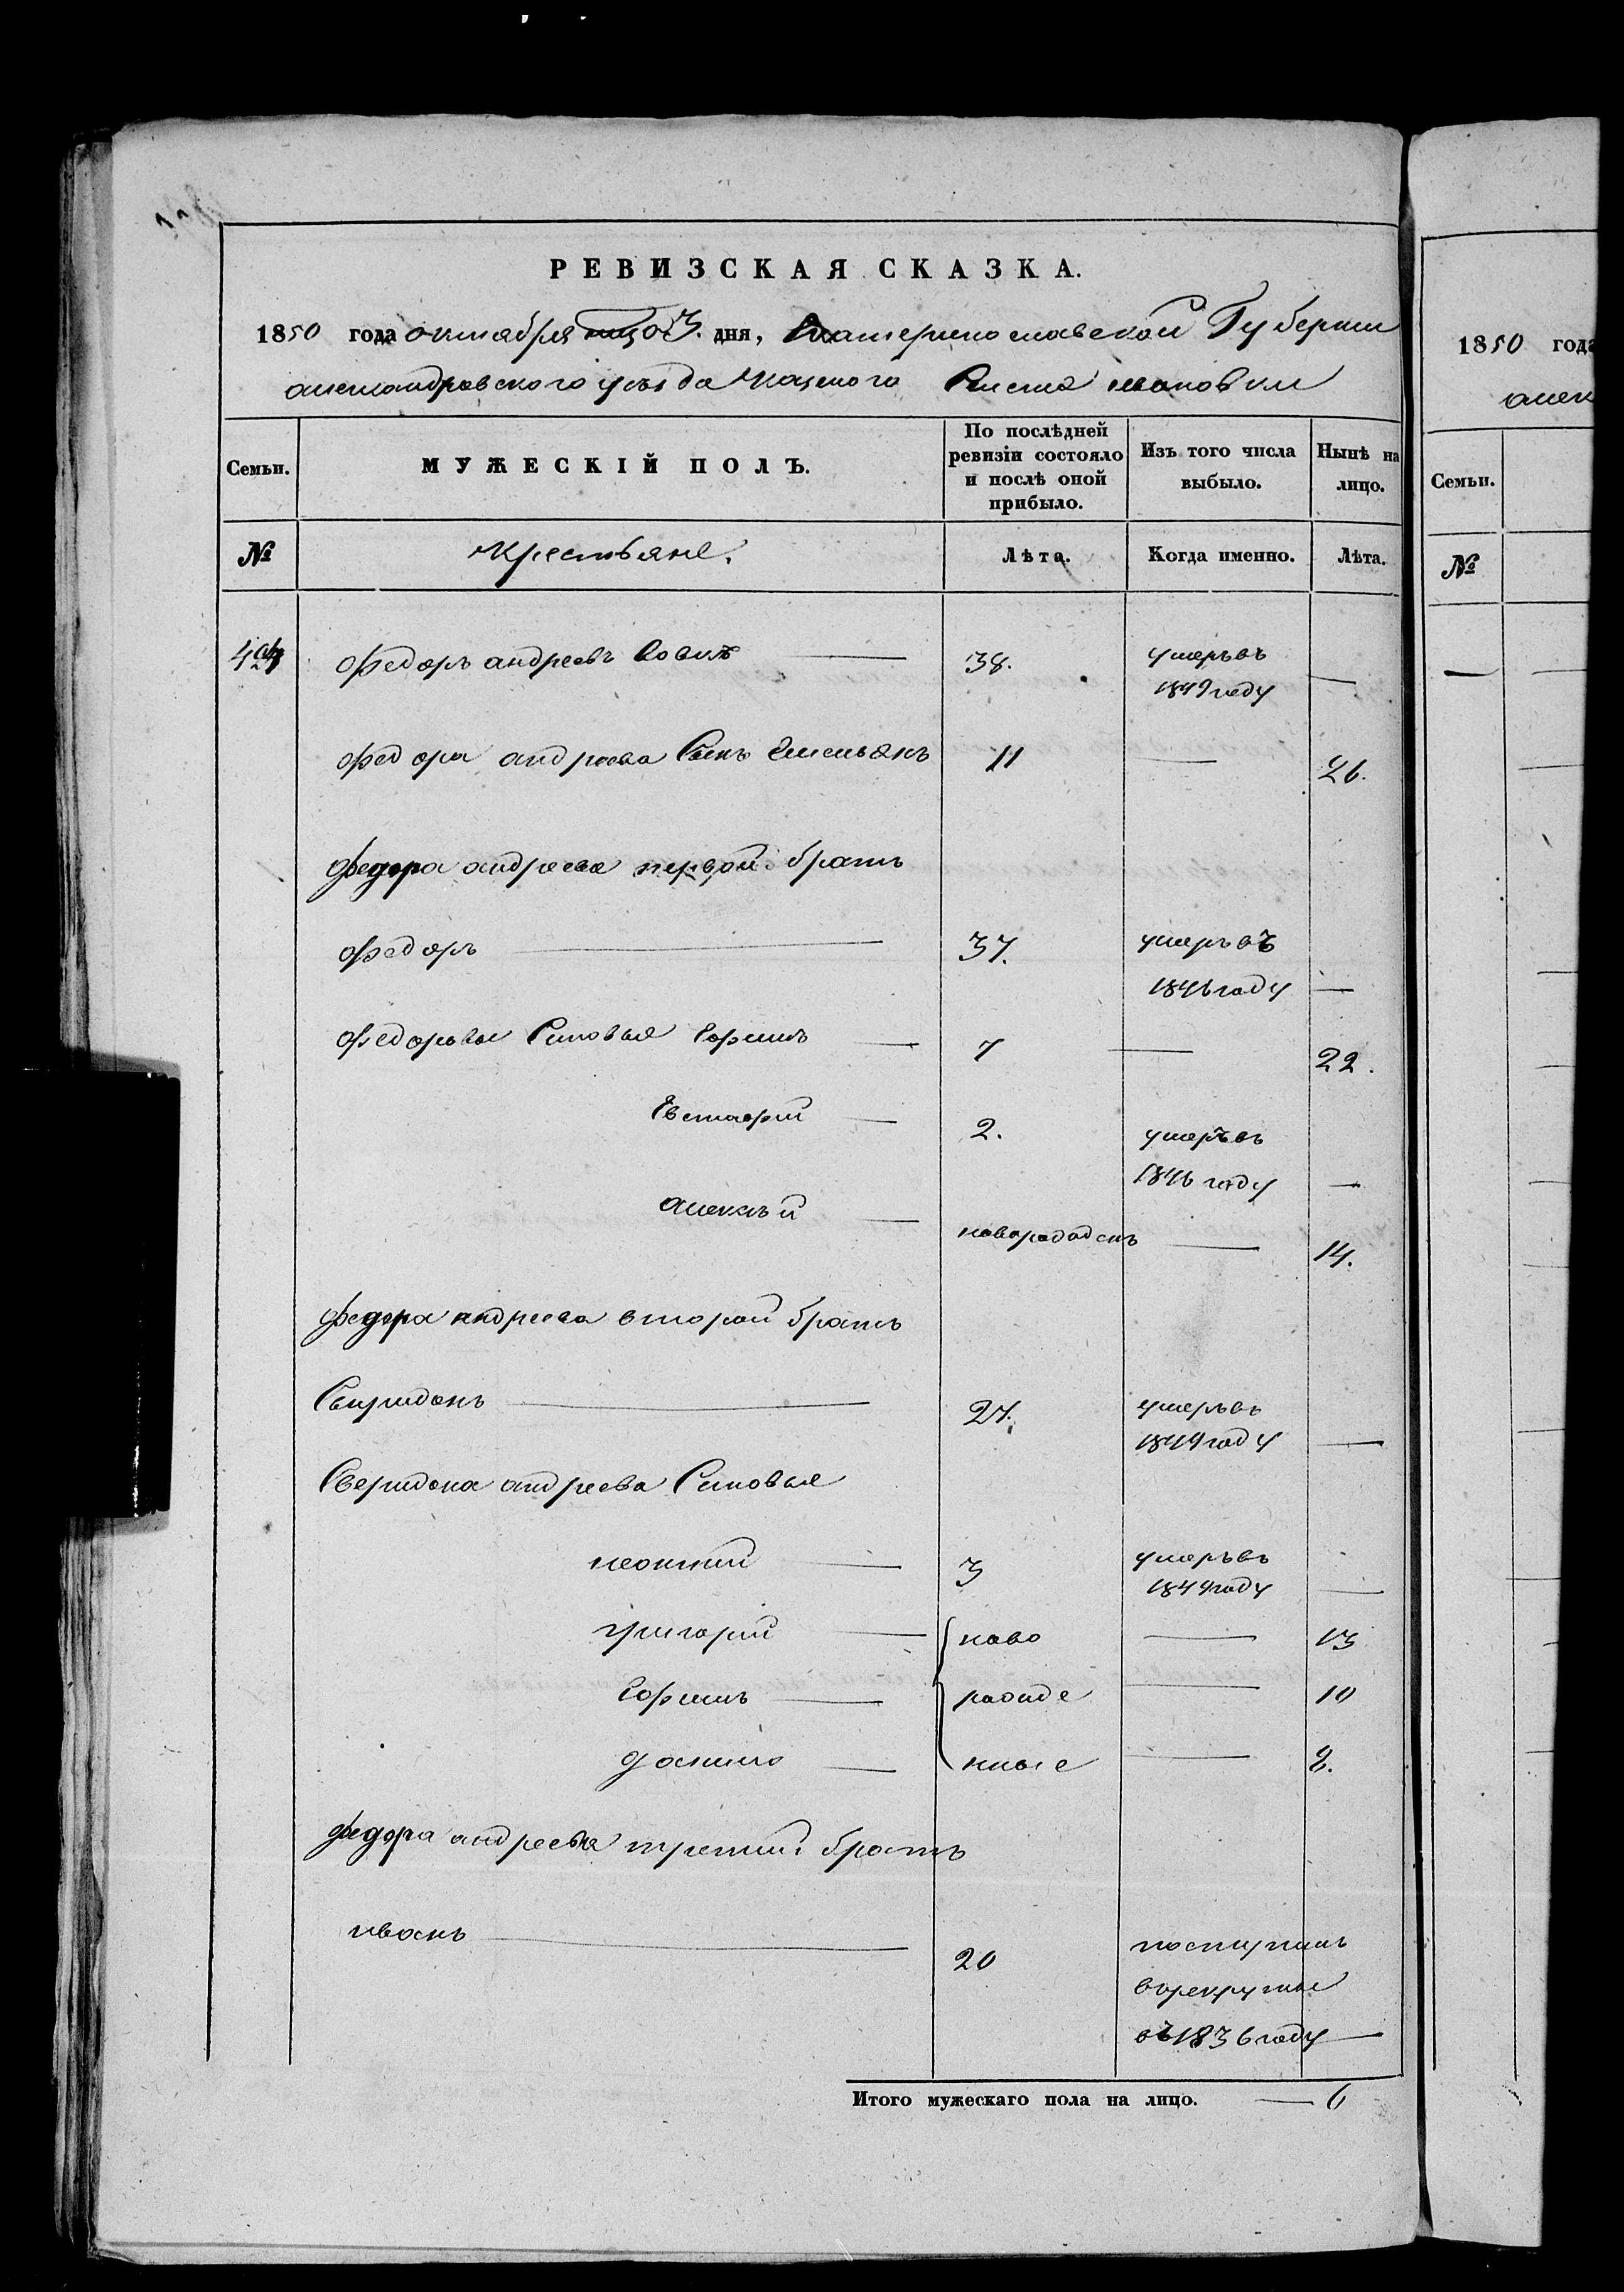 РЕВИЗСКАЯ СКАЗКА.
1850 года октября 3. дня, Екатеринославской Губернии
александровского уѣзда казеного Села ивановки
Семьи. МУЖЕСКІЙ ПОЛЪ. По послѣдней ревизіи состояло и послѣ оной прибыло. Изъ того числа выбыло. Нынѣ на лицо.
№ крестьяне. Лѣта. Когда именно. Лѣта.
федоръ андреевъ 38. умеръ въ
1849 году —
федора андреева Сынъ Емельянъ 11 — 26.
федора андреева первой братъ
федоръ — 37. умеръ въ
1846 году —
федоровы Синовья Ефимъ — 7 — 22.
Евстафій — 2. умеръ въ
1846 году —
алексѣй — новорожденъ — 14.
федора андреева второй братъ
Свиридонъ — 27. умеръ въ
1849 году —
Сверидона андреева Синовья
леонтий — 3 умеръ въ
1844 году —
григорий — ново — 13
Ефимъ — рожде — 10
данило — нные — 8.
федора андреева третий братъ
иванъ — 20 поступилъ
врекруты
въ 1836 году —
Итого мужескаго пола на лицо. — 6
1850 года
алек
Семьи.
№